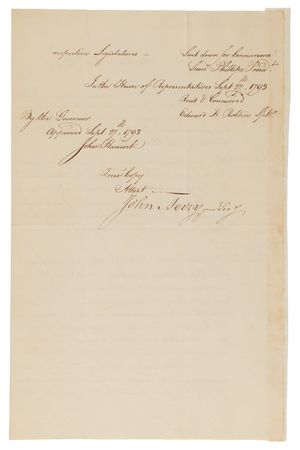 respective Legislatures — Sent down for Concurrence
Sam Phillips Presid.t
In the House of Representatives Sept 27th 1793
Read & Concurred
Edward H Robbins Spkr
By the Governor
Approved Sept 27th 1793
John Hancock
True Copy
Attest
John Avery jun Secy